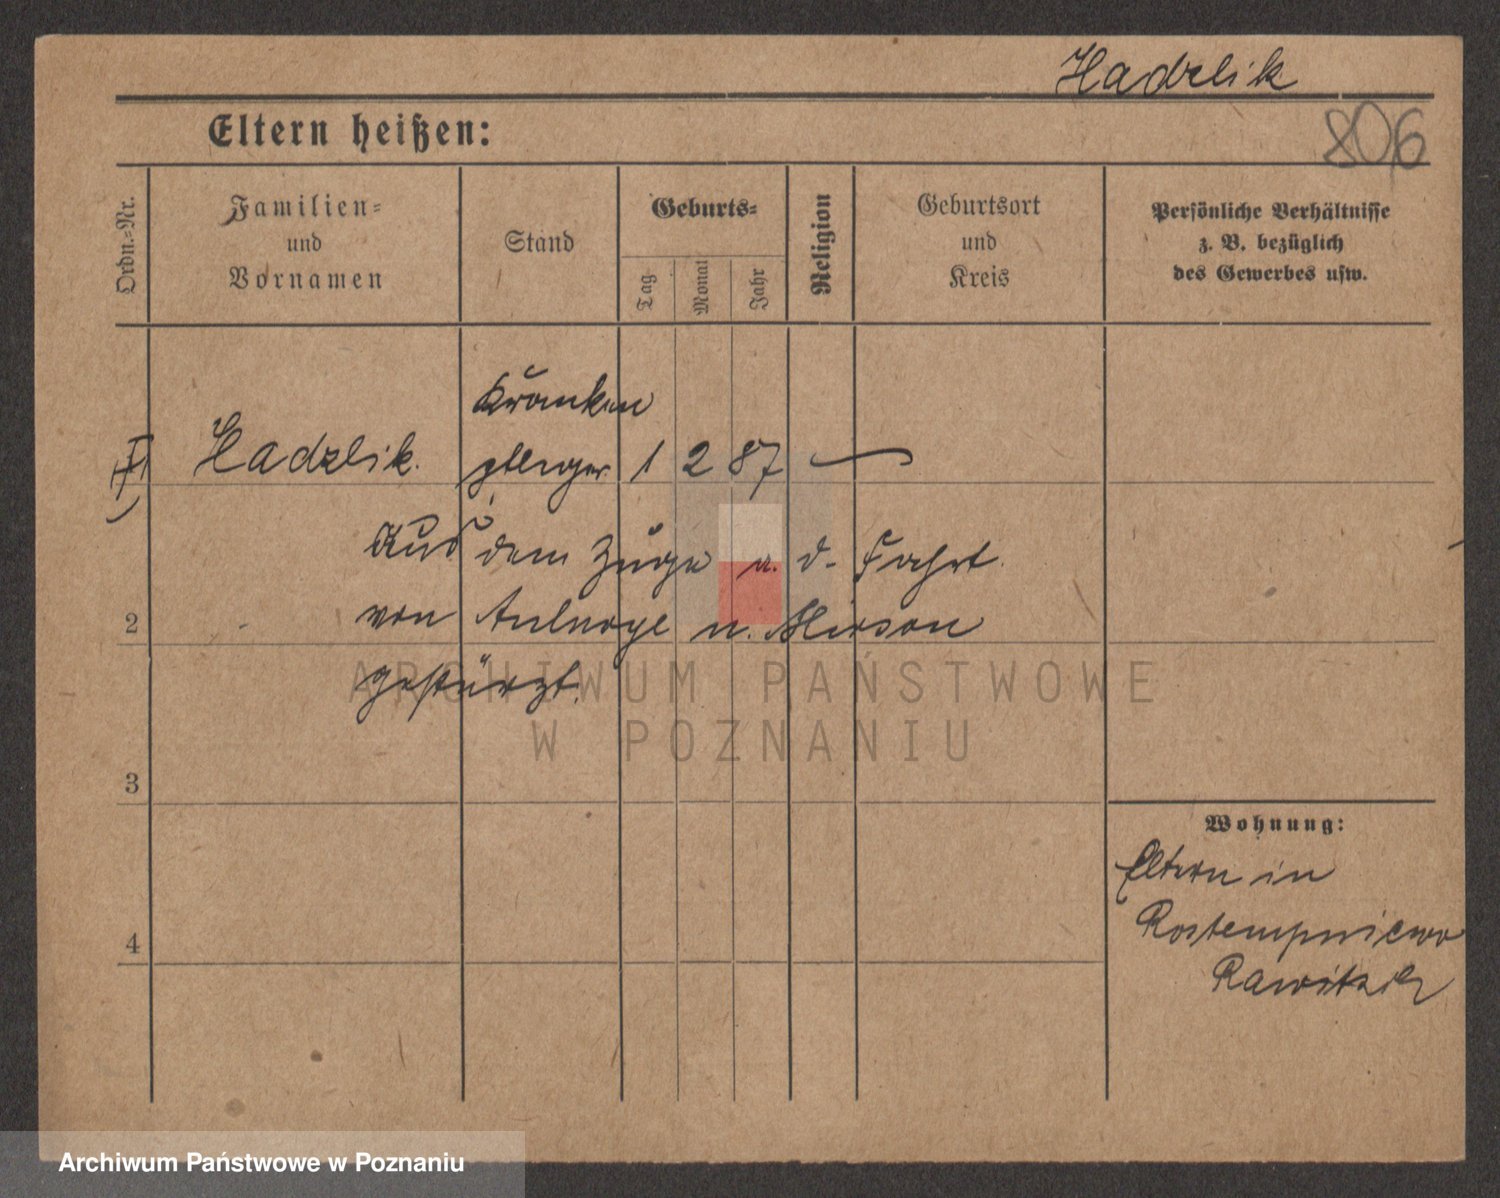 Hadzlik
806
Eltern heißen:
Ordn.-Nr.
Familien- und Vornamen
Stand
Geburts-
Tag
Monat
Jahr
Religion
Geburtsort und Kreis
Persönliche Verhältnisse z. B. bezüglich des Gewerbes usw.
Kranken
Hadzlik. pfleger 1 2 87 —
Aus dem Zuge a. d. Fahrt
2 von Aulnoye n. Hirson
gestürzt.
ARCHIWUM PAŃSTWOWE
W POZNANIU
3
Wohnung:
Eltern in
4
Rawitsch
Archiwum Państwowe w Poznaniu